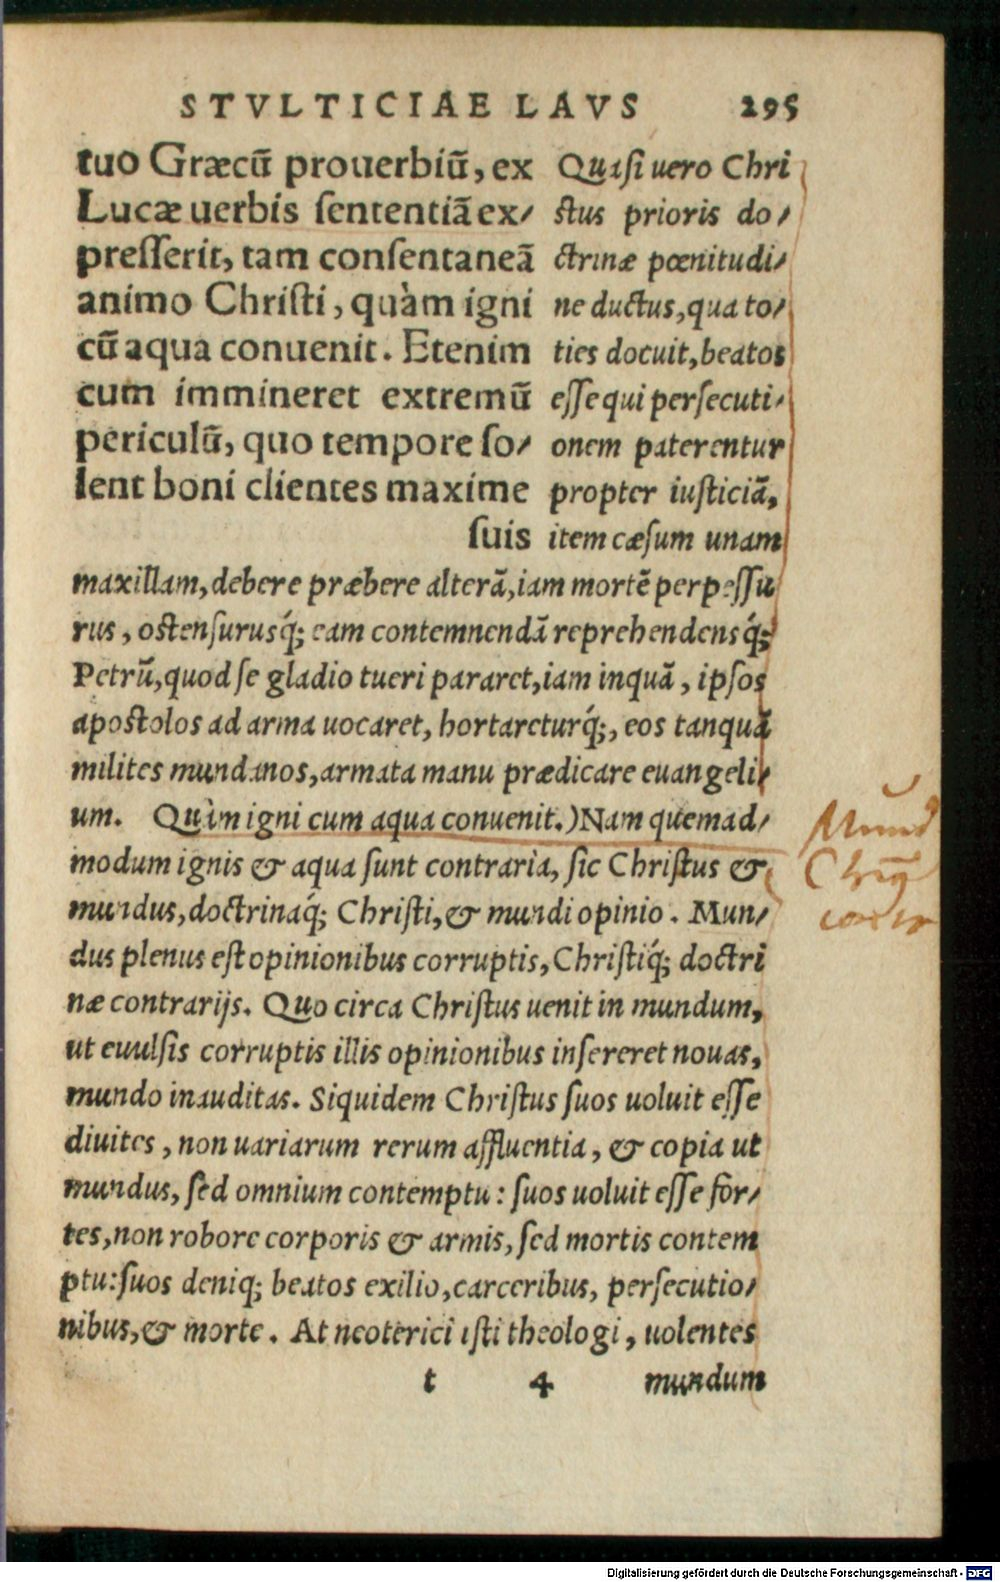 STVLTICIAE LAVS 295
tuo Græcū prouerbiū, ex
Lucæ uerbis sententiā ex/
presserit, tam consentaneā
animo Christi, quàm igni
cū aqua conuenit. Etenim
cum immineret extremū
periculū, quo tempore so/
lent boni clientes maxime
suis
Quasi uero Chri
stus prioris do/
ctrinæ pœnitudi/
ne ductus, qua to/
ties docuit, beatos
esse qui persecuti/
onem paterentur
propter iusticiā,
item cæsum unam
maxillam, debere præbere alterā, iam mortē perpessu
rus, ostensurusq́; eam contemnendā reprehendensq́;
Petrū, quod se gladio tueri pararet, iam inquā, ipsos
apostolos ad arma uocaret, hortareturq́;, eos tanquā
milites mundanos, armata manu prædicare euangeli/
um. Quàm igni cum aqua conuenit.) Nam quemad/
modum ignis & aqua sunt contraria, sic Christus &
mundus, doctrinaq́; Christi, & mundi opinio. Mun/
dus plenus est opinionibus corruptis, Christiq́; doctri
næ contrarijs. Quo circa Christus uenit in mundum,
ut euulsis corruptis illis opinionibus insereret nouas,
mundo inauditas. Siquidem Christus suos uoluit esse
diuites, non uariarum rerum affluentia, & copia ut
mundus, sed omnium contemptu: suos uoluit esse for/
tes, non robore corporis & armis, sed mortis contem
ptu: suos deniq; beatos exilio, carceribus, persecutio/
nibus, & morte. At neoterici isti theologi, uolentes
t 4 mundum
Digitalisierung gefördert durch die Deutsche Forschungsgemeinschaft - DFG